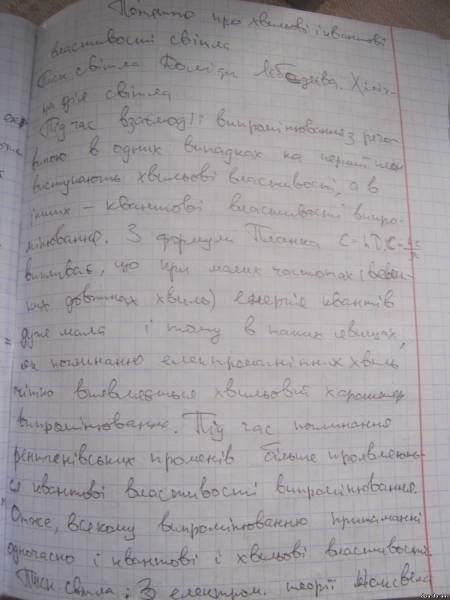 Поняття про хвильові і квантові
властивості світла
Тиск світла. Досліди Лебедєва. Хіміч-
на дія світла
Під час взаємодії випромінювання з речо-
виною в одних випадках на перший план
виступають хвильові властивості, а в
інших – квантові властивості випро-
мінювання. З формули Планка
випливає, що при малих частотах (вели-
ких довжинах хвиль) енергія квантів
дуже мала і тому в таких явищах,
як поглинанню електромагнітних хвиль
чітко виявляється хвильовий характер
випромінювання. Під час поглинання
рентгенівських променів більше проявляють-
ся квантові властивості випромінювання.
Отже, всякому випромінюванню притаманні
одночасно і квантові і хвильові властивості.
Тиск світла: З електром. теорії Максвела